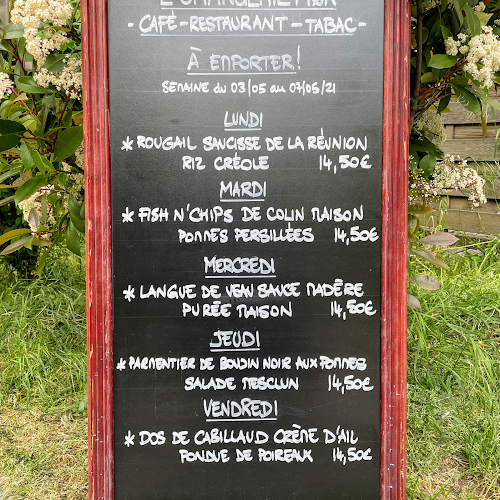 - CAFÉ - RESTAURANT - TABAC -
À EMPORTER !
SEMAINE du 03/05 au 07/05/21
LUNDI
* ROUGAIL SAUCISSE DE LA RÉUNION
RIZ CRÉOLE 14,50€
MARDI
* FISH N'CHIPS DE COLIN MAISON
POMMES PERSILLÉES 14,50€
MERCREDI
* LANGUE DE VEAU SAUCE MADÈRE
PURÉE MAISON 14,50€
JEUDI
* PARMENTIER DE BOUDIN NOIR AUX POMMES
SALADE MESCLUN 14,50€
VENDREDI
* DOS DE CABILLAUD CRÈME D'AIL
FONDUE DE POIREAUX 14,50€